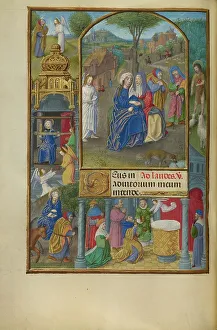 Eus in Ad laudes. V.
adiutorium meum
intende